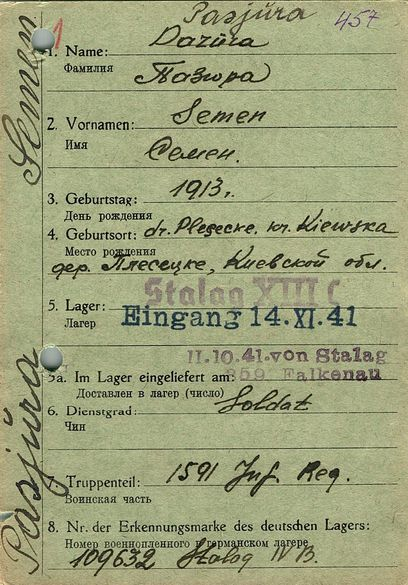 Pasjüra
457
1
1. Name: Dazüra
Фамилия Пазюра
2. Vornamen: Semen
Имя Семен.
3. Geburtstag: 1913г.
День рождения
4. Geburtsort: dr. Plesecke, kr. Kiewska
Место рождения
дер. Плесецке, Киевской обл.
Stalag XIII C
5. Lager: Eingang 14.XI.41
Лагер
11.10.41. von Stalag
359 Falkenau
5a. Im Lager eingeliefert am:
Доставлен в лагер (число)
6. Dienstgrad: Soldat
Чин
7. Truppenteil: 1591 Inf. Reg.
Воинская часть
8. Nr. der Erkennungsmarke des deutschen Lagers:
Номер военнопленного в германском лагере
109632 Stalag IV B.
Pasjüra Semen